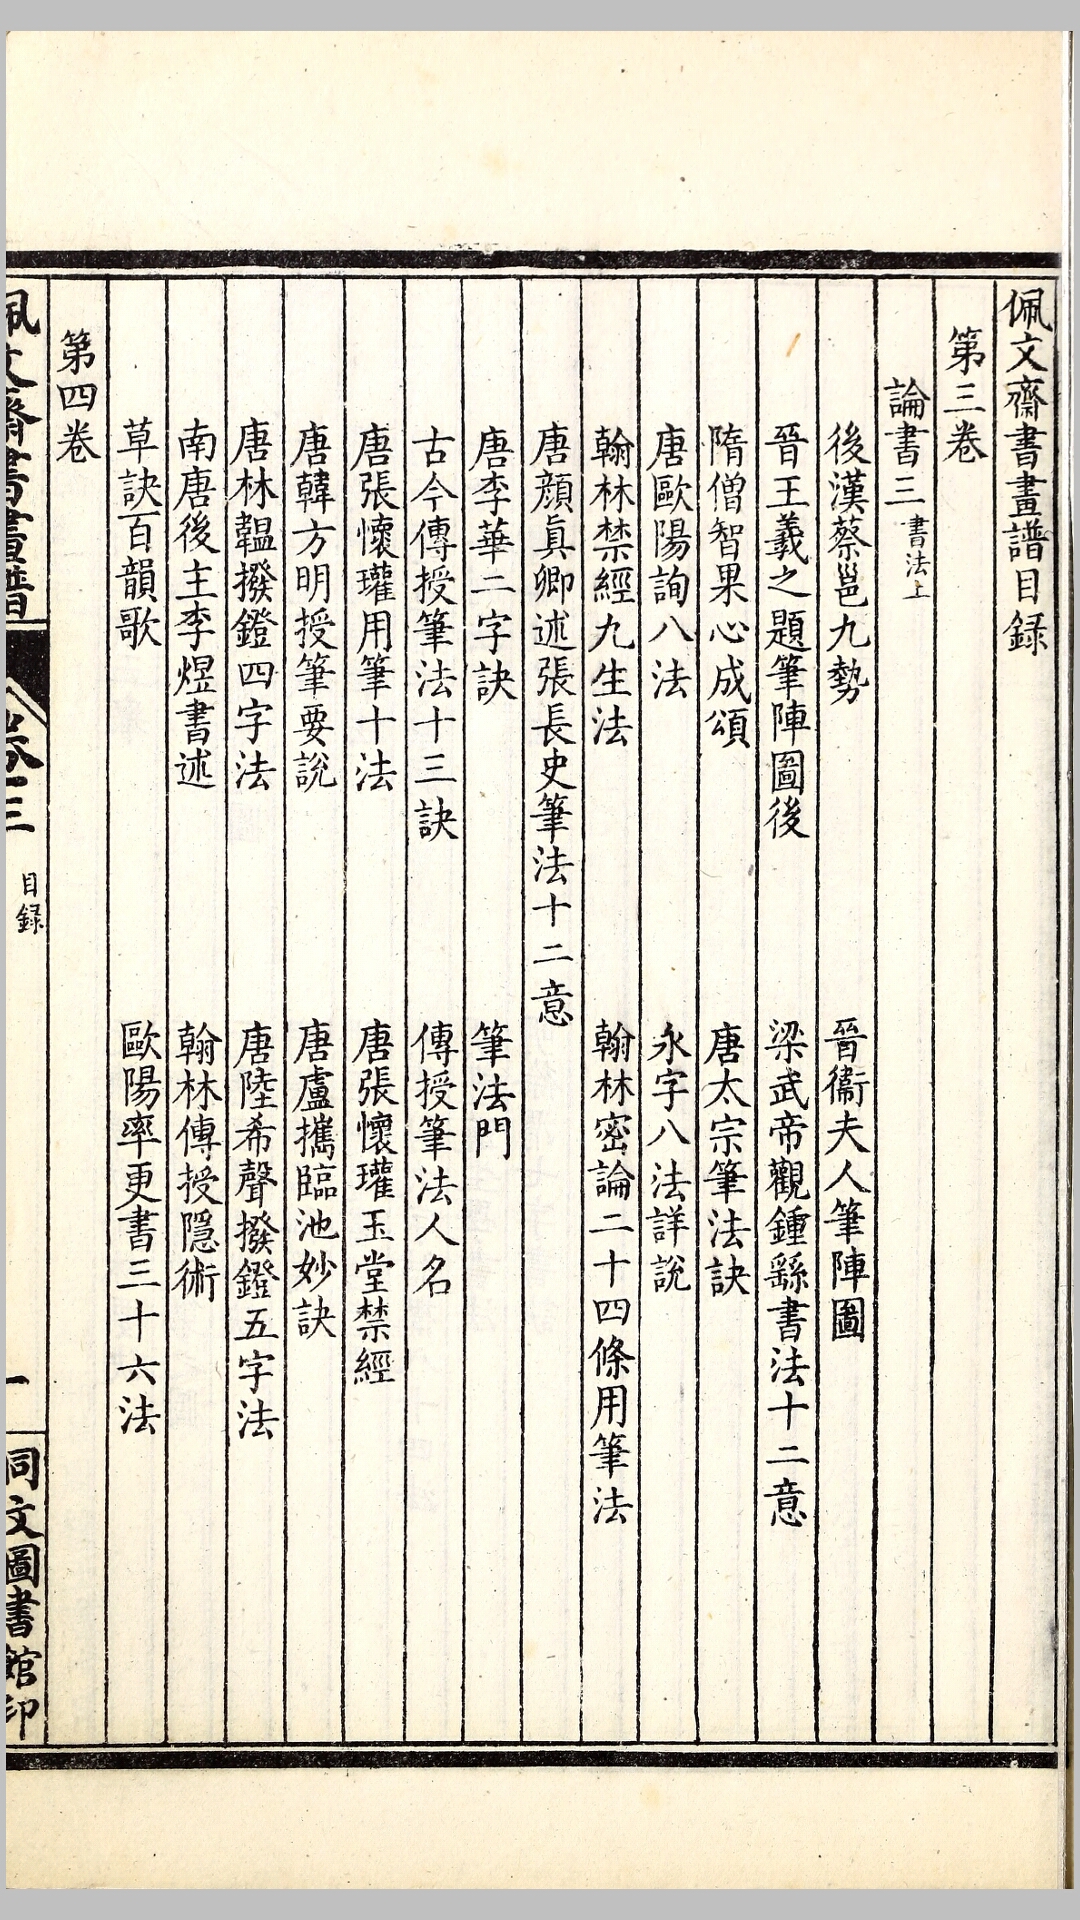 佩文齋書畫譜目録
第三卷
論書三 書法上
後漢蔡邕九勢 晉衞夫人筆陣圖
晉王羲之題筆陣圖後 梁武帝觀鍾繇書法十二意
隋僧智果心成頌 唐太宗筆法訣
唐歐陽詢八法 永字八法詳說
翰林禁經九生法 翰林密論二十四條用筆法
唐顏眞卿述張長史筆法十二意
唐李華二字訣 筆法門
古今傳授筆法十三訣 傳授筆法人名
唐張懷瓘用筆十法 唐張懷瓘玉堂禁經
唐韓方明授筆要說 唐盧攜臨池妙訣
唐林韞撥鐙四字法 唐陸希聲撥鐙五字法
南唐後主李煜書述 翰林傳授隱術
草訣百韻歌 歐陽率更書三十六法
第四卷
佩文齋書畫譜 卷三 目録 一 同文圖書館印